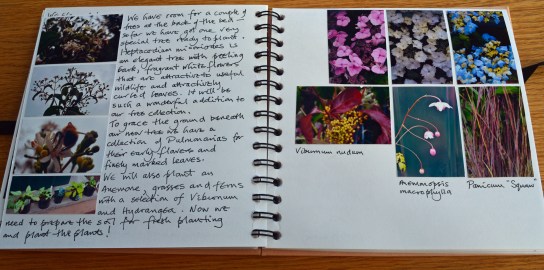 We have room for a couple of
trees at the back of the bed -
so far we have got one very
special tree ready to plant.
Heptacodium miconiodes is
an elegant tree with peeling
bark, fragrant white flowers
that are attractive to useful
wildlife and attractively
curled leaves. It will be
such a wonderful addition to
our tree collection.
To grace the ground beneath
our new tree we have a
collection of Pulmonarias for
their early flowers and
finely marked leaves.
We will also plant an
Anemone, grasses and ferns
with a selection of Viburnum
and Hydrangea. Now we
need to prepare the soil for fresh planting
and plant the plants!
Viburnum nudum
Anemonopsis
macrophylla
Panicum "Squaw"